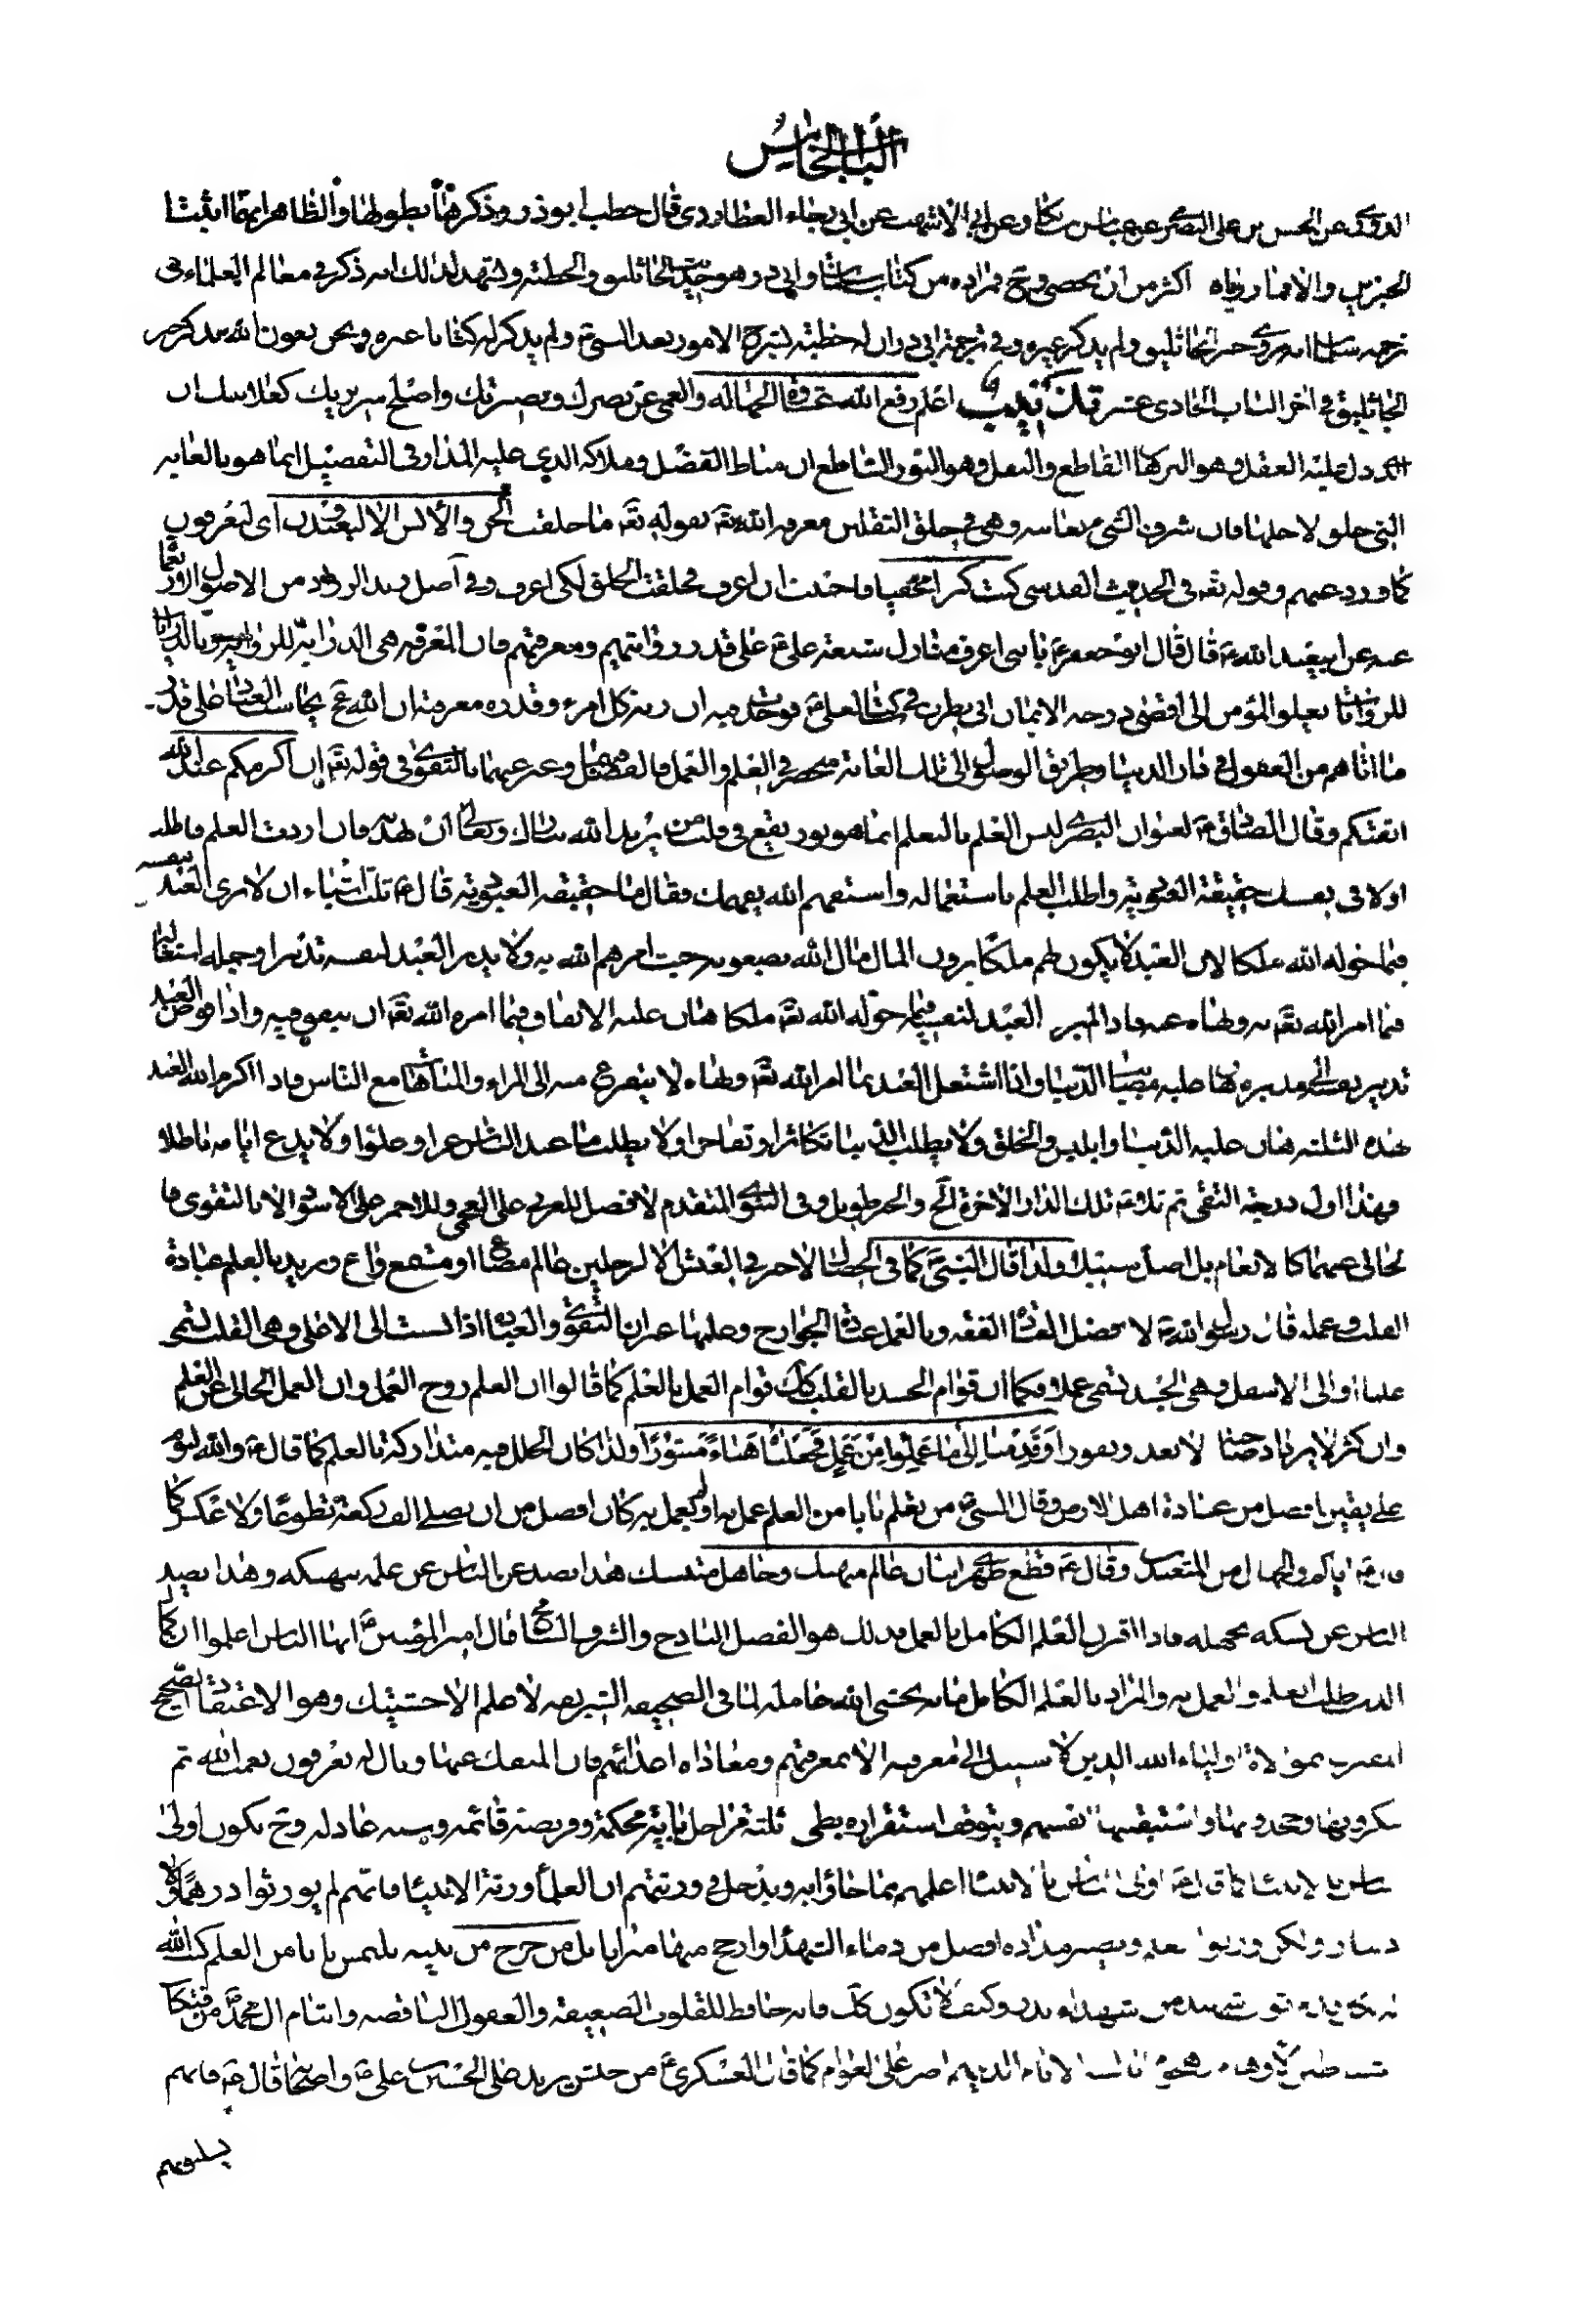 الباب الخامس
الدورى عن الحسن بن على البصرى عن عباس بن بكار وعن ابى الاشهب عن ابى رجاء العطاردى قال خطب ابوذر وذكرها بطولها والظاهر انهما اثبتا
الخبرين والاقتصار اكثر من ان يحصى وهو حديث الجاثليق والخطبة ويشهد لذلك انه ذكر فى معالم العلماء فى
ترجمة سلمان انه روى خبر الجاثليق ولم يذكر غيره وفى ترجمة ابى ذر ان له خطبة يشرح الامور بعد النبى ولم يذكر له كتابا غيره ونحن بعون الله نذكر خبر
الجاثليق فى اخر الباب الحادى عشر تذنيب اعلم رفع الله غشاوة الجهالة والعمى عن بصرك وبصيرتك واصلح سريرتك كعلانيتك ان
الذى دل عليه العقل وهو البرهان القاطع والنقل وهو النور الساطع ان مناط الفضل وملاكه الذى عليه المدار فى التفضيل انما هو بالغاية
التى خلق لاجلها فان شرف الشىء بغايته وهى فى خلق الثقلين معرفة الله تعالى بقوله تعالى ما خلقت الجن والانس الا ليعبدون اى ليعرفون
كما ورد عنهم وقوله تعالى فى الحديث القدسى كنت كنزا مخفيا فاحببت ان اعرف فخلقت الخلق لكى اعرف وفى اصل زيد الزراد من الاصول
عنه عن ابيعبد الله قال قال ابو جعفر يا بنى اعرف منازل شيعة على على قدر روايتهم ومعرفتهم فان المعرفة هى الدراية للرواية وبالدرايات
للروايات يعلو المؤمن الى اقصى درجة الايمان انى نظرت فى كتاب لعلى فوجدت فيه ان زنة كل امرء وقدره معرفته ان الله عز وجل يحاسب العباد على قدر
ما اتاهم من العقول فى دار الدنيا وطريق الوصول الى تلك الغاية منحصر فى العلم والعمل وعبر عنهما بالتقوى فى قوله تعالى ان اكرمكم عند الله
اتقيكم وقال الصادق لعنوان البصرى ليس العلم بالتعلم انما هو نور يقع فى قلب من يريد الله تبارك وتعالى ان يهديه فان اردت العلم فاطلب
اولا فى نفسك حقيقة العبودية واطلب العلم باستعماله واستفهم الله يفهمك فقال ما حقيقة العبودية قال ثلثة اشياء ان لا يرى العبد لنفسه
فيما خوله الله ملكا لان العبيد لا يكون لهم ملك يرون المال مال الله يضعونه حيث امرهم الله به ولا يدبر العبد لنفسه تدبيرا وجملة اشتغاله
فيما امر الله تعالى به ونهاه عنه فاذا لم ير العبد لنفسه فيما خوله الله تعالى ملكا هان عليه الانفاق فيما امره الله تعالى ان ينفق فيه واذا فوض العبد
تدبير نفسه الى مدبره هان عليه مصائب الدنيا واذا اشتغل العبد بما امر الله تعالى ونهاه لا يتفرغ منه الى المراء والمباهاة مع الناس فاذا اكرم الله العبد
بهذه الثلثة هان عليه الدنيا وابليس والخلق ولا يطلب الدنيا تكاثرا وتفاخرا ولا يطلب ما عند الناس عزا وعلوا ولا يدع ايامه باطلا
فهذا اول درجة التقى ثم تلا تلك الدار الاخرة الخ والخبر طويل وفى النبوى المتقدم لا فضل للعربى على العجمى وللاحمر على الاسود الا بالتقوى فا
لخالى عنهما كالانعام بل اضل سبيلا ولذا قال النبى كما فى لا خير فى العيش الا لرجلين عالم مطاع او مستمع واع ونريد بالعلم عبادة
القلب وعمله قال رسول الله لا افضل العبادة الفقه وبالعمل عبادة الجوارح وعليهما التقوى والعبادة اذا نسبت الى الاعلى وهى القلب تسمى
علما والى الاسفل وهى الجسد تسمى عملا وكما ان قوام الجسد بالقلب كك قوام العمل بالعلم كما قالوا ان العلم روح العمل وان العمل الخالى عن العلم
وان كثر لا يزيد صاحبه الا بعد ونفورا وقدمنا الى ما عملوا من عمل فجعلناه هباء منثورا ولذا كان الخلل فيه متداركة بالعلم كما قال والله لنوم
على يقين افضل من عبادة اهل الارض وقال النبى من تعلم بابا من العلم عمل به او لم يعمل به كان افضل من ان يصلى الف ركعة تطوعا ولا عكس كما
قال اياكم والجهال من المتعبدين وقال قطع ظهرى اثنان عالم متهتك وجاهل متنسك هذا يصد عن الناس عن علمه بتهتكه وهذا يصد
الناس عن نسكه بجهله فاذا اقترن العلم الكامل بالعمل فذلك هو الفضل الباذخ والشرف الشامخ قال امير المؤمنين ايها الناس اعلموا ان كمال
الدين طلب العلم والعمل به والمراد بالعلم الكامل ما يخشى الله حامله لما فى الصحيفة الشريفة لا علم الا خشيتك وهو الاعتقاد الصحيح
المقترن بموالاة اولياء الله الذين لا سبيل الى معرفته الا بمعرفتهم ومعاداة اعدائهم فان المنفك عنها وبال له يعرفون نعمة الله ثم
ينكرونها وجحدوا بها واستيقنتها انفسهم ويتوقف استقراره بطى ثلثة مراحل اية محكمة وفريضة قائمة وسنة عادلة وح يكون اولى
الناس بالانبياء كما قال اولى الناس بالانبياء اعلمهم بما جاؤا به ويدخل فى ورثتهم ان العلماء ورثة الانبياء فانهم لم يورثوا درهما ولا
دينار ولكن ورثوا العلم ويصير مداده افضل من دماء الشهداء وارجح منها ميزانا بل من خرج من بيته يلتمس بابا من العلم كتب الله
له بكل قدم ثواب شهيد من شهداء بدر وكيف لا تكون كك فانه حافظ للقلوب الضعيفة والعقول الناقصة وايتام ال محمد من فتكات
اضر على العوام كما قال العسكرى من جيش يزيد على الحسين بن على واصحابه قال فانهم
يسلبونهم